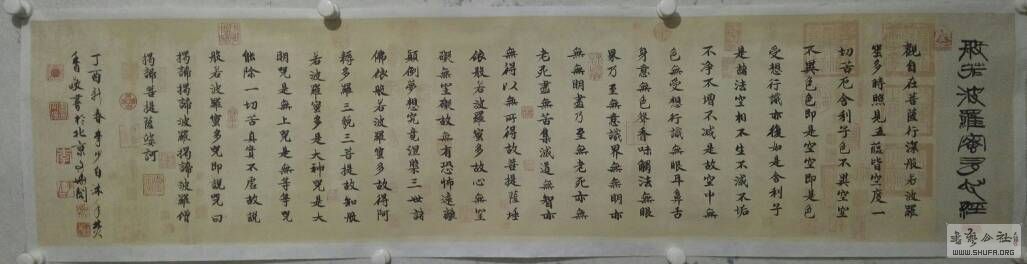 般若波羅蜜多心經
觀自在菩薩行深般若波羅
蜜多時照見五蘊皆空度一
切苦厄舍利子色不異空空
不異色色即是空空即是色
受想行識亦復如是舍利子
是諸法空相不生不滅不垢
不淨不增不減是故空中無
色無受想行識無眼耳鼻舌
身意無色聲香味觸法無眼
界乃至無意識界無無明亦
無無明盡乃至無老死亦無
老死盡無苦集滅道無智亦
無得以無所得故菩提薩埵
依般若波羅蜜多故心無罣
礙無罣礙故無有恐怖遠離
顛倒夢想究竟涅槃三世諸
佛依般若波羅蜜多故得阿
耨多羅三藐三菩提故知般
若波羅蜜多是大神咒是大
明咒是無上咒是無等等咒
能除一切苦真實不虛故說
般若波羅蜜多咒即說咒曰
揭諦揭諦波羅揭諦波羅僧
揭諦菩提薩婆訶
丁酉新春李少白本
書於北京
書法公社
WWW.SHUFA.ORG